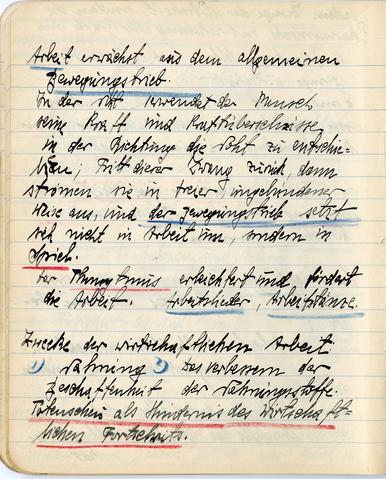 Arbeit erwächst aus dem allgemeinen
Bewegungstrieb.
In der Not verwendet der Mensch
seine Kraft und Kraftüberschüsse
in der Richtung die Not zu
Tritt dieser Zwang zurück, dann
strömen sie in freier, ungebundener
Weise aus, und der Bewegungstrieb setzt
sich nicht in Arbeit um, sondern in
Spiel.
Der Rhythmus erleichtert und fördert
die Arbeit. Arbeitslieder, Arbeitstänze.
Zwecke der wirtschaftlichen Arbeit
1) Nahrung 2) Das Verbessern der
Beschaffenheit der Nahrungsstoffe.
Totenscheu als Hindernis des wirtschaft-
lichen Fortschritts.